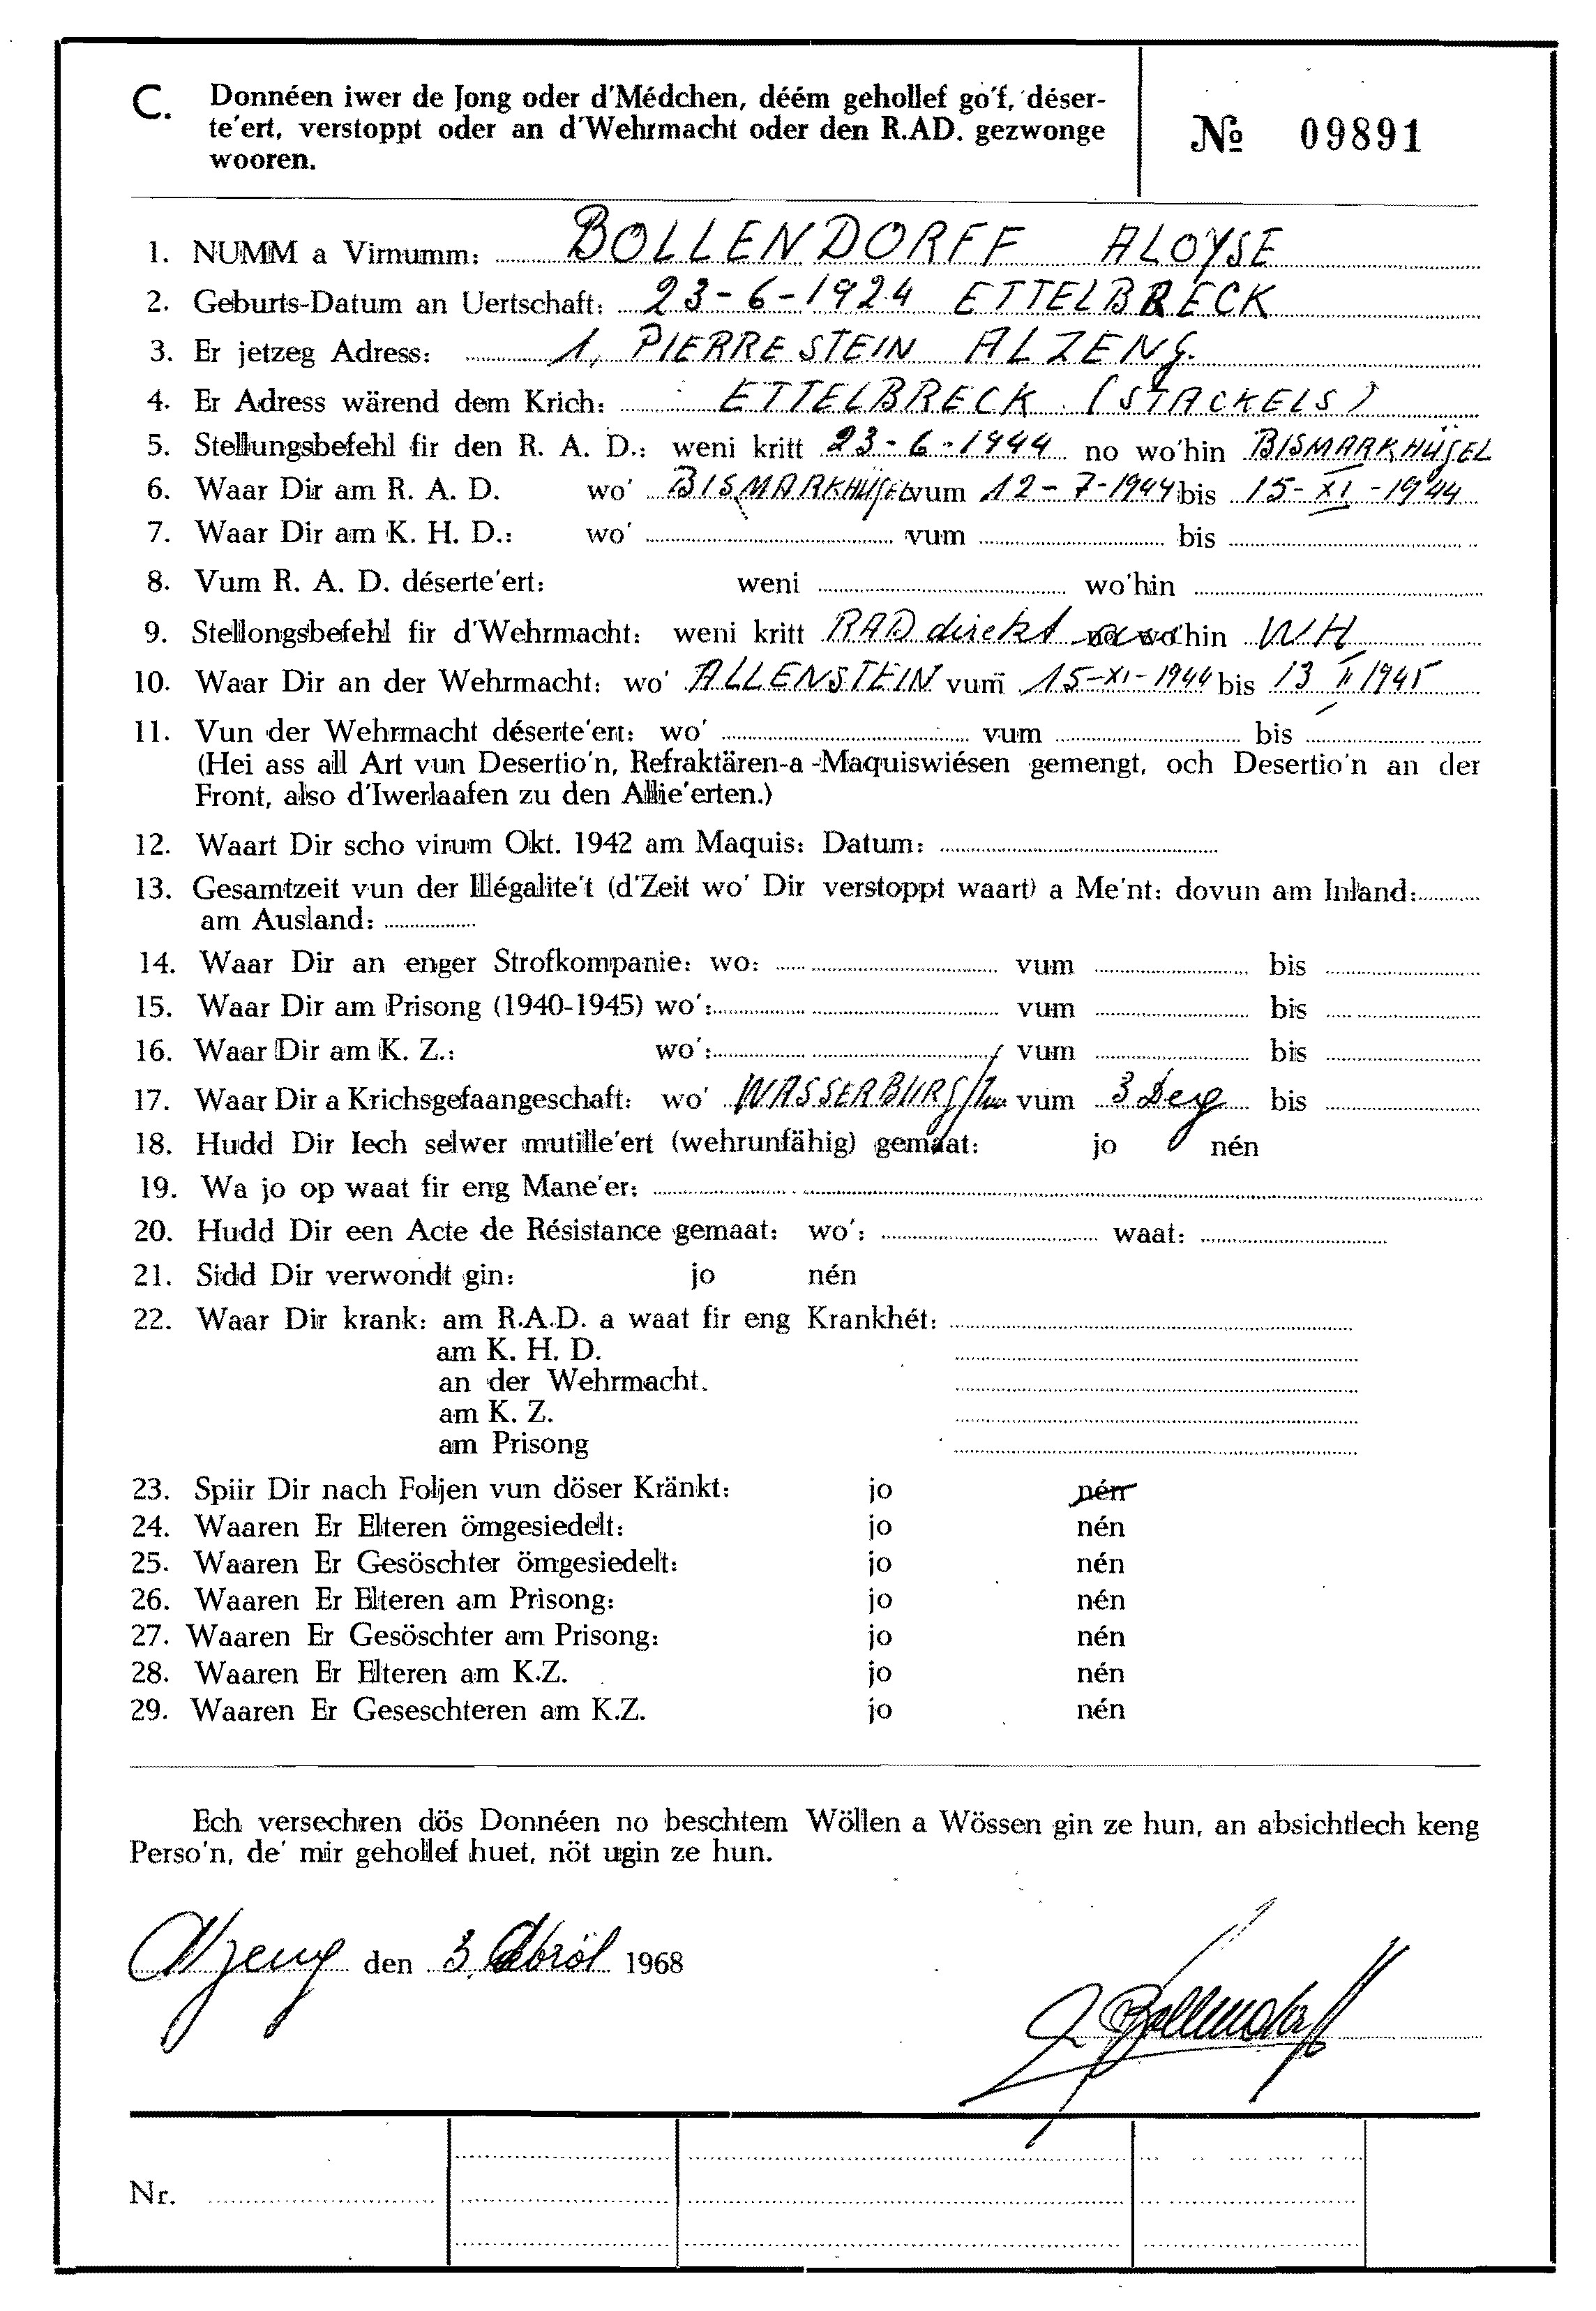 C. Donnéen iwer de Jong oder d'Médchen, déém gehollef go'f, déser-
te'ert, verstoppt oder an d'Wehrmacht oder den R.AD. gezwonge
wooren.
№ 09891
1. NUMM a Virnumm: BOLLENDORFF ALOYSE
2. Geburts-Datum an Uertschaft: 23-6-1924 ETTELBRECK
3. Er jetzeg Adress: 1, PIERRE STEIN ALZENG.
4. Er Adress wärend dem Krich: ETTELBRECK (STACKELS)
5. Stellungsbefehl fir den R. A. D.: weni kritt 23-6-1944 no wo'hin BISMARKHÜGEL
6. Waar Dir am R. A. D. wo' BISMARKHÜGEL vum 12-7-1944 bis 15-XI-1944
7. Waar Dir am K. H. D.: wo' vum bis
8. Vum R. A. D. déserte'ert: weni wo'hin
9. Stellongsbefehl fir d'Wehrmacht: weni kritt RAD direkt no wo'hin WH
10. Waar Dir an der Wehrmacht: wo' ALLENSTEIN vum 15-XI-1944 bis 13 II 1945
11. Vun der Wehrmacht déserte'ert: wo' vum bis
(Hei ass all Art vun Desertio'n, Refraktären-a -Maquiswiésen gemengt, och Desertio'n an der
Front, also d'Iwerlaafen zu den Allie'erten.)
12. Waart Dir scho virum Okt. 1942 am Maquis: Datum:
13. Gesamtzeit vun der Illégalite't (d'Zeit wo' Dir verstoppt waart) a Me'nt: dovun am Inland:
am Ausland:
14. Waar Dir an enger Strofkompanie: wo: vum bis
15. Waar Dir am Prisong (1940-1945) wo': vum bis
16. Waar Dir am K. Z.: wo': vum bis
17. Waar Dir a Krichsgefaangeschaft: wo' WASSERBURG/Inn vum 3 Deg bis
18. Hudd Dir Iech selwer mutille'ert (wehrunfähig) gemaat: jo nén
19. Wa jo op waat fir eng Mane'er:
20. Hudd Dir een Acte de Résistance gemaat: wo': waat:
21. Sidd Dir verwondt gin: jo nén
22. Waar Dir krank: am R.A.D. a waat fir eng Krankhét:
am K. H. D.
an der Wehrmacht.
am K. Z.
am Prisong
23. Spiir Dir nach Foljen vun döser Kränkt: jo nén
24. Waaren Er Elteren ömgesiedelt: jo nén
25. Waaren Er Gesöschter ömgesiedelt: jo nén
26. Waaren Er Elteren am Prisong: jo nén
27. Waaren Er Gesöschter am Prisong: jo nén
28. Waaren Er Elteren am K.Z. jo nén
29. Waaren Er Geseschteren am K.Z. jo nén
Ech versechren dös Donnéen no beschtem Wöllen a Wössen gin ze hun, an absichtlech keng
Perso'n, de' mir gehollef huet, nöt ugin ze hun.
Alzeng den 3. Abröl 1968
Bollendorff
Nr.